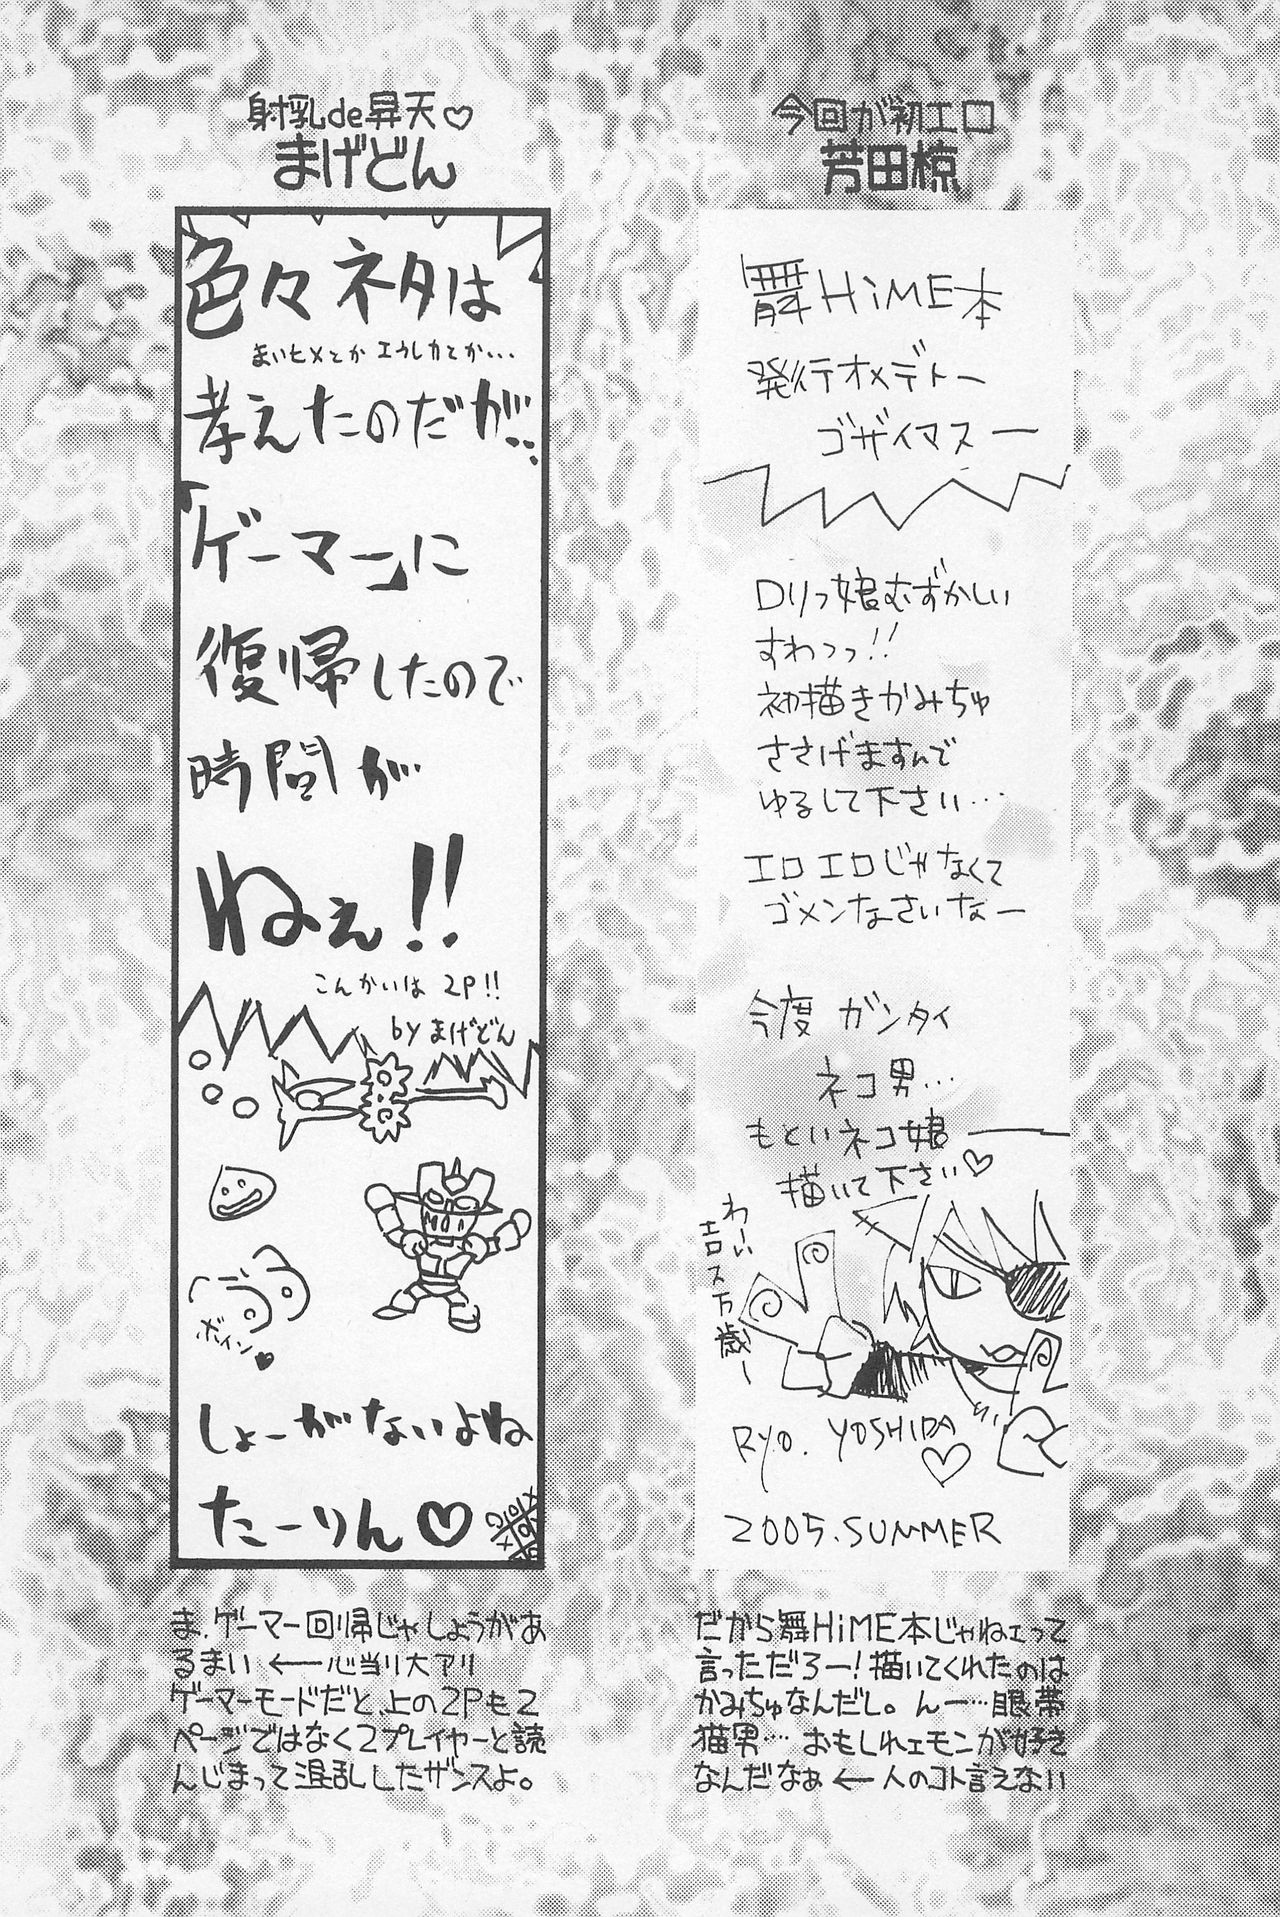 今回が初エロ
芳田椋
舞HiME本
発行オメデトー
ゴザイマスー
ロリっ娘むずかしい
すわっっ!!
初描きかみちゅ
ささげますんで
ゆるして下さい…
エロエロじゃなくて
ゴメンなさいなー
今度 ガンタイ
ネコ男…
もといネコ娘
描いて下さい♡
わーい
エロス万歳ー
RYO. YOSHIDA
♡
2005.SUMMER
だから舞HiME本じゃねェって
言っただろー！描いてくれたのは
かみちゅなんだし。んー…眼帯
猫男… おもしれェモンが好き
なんだなぁ ← 人のコト言えない
射乳de昇天♡
まげどん
色々ネタは
まいヒメとか エウレカとか…
考えたのだが…
「ゲーマー」に
復帰したので
時間が
ねぇ!!
こんかいは 2P!!
by まげどん
ボイン♥
しょーがないよね
たーりん♡
ま、ゲーマー回帰じゃしょうがあ
るまい ← 心当り大アリ
ゲーマーモードだと、上の2Pも2
ページではなく2プレイヤーと読
んじまって混乱したザンスよ。